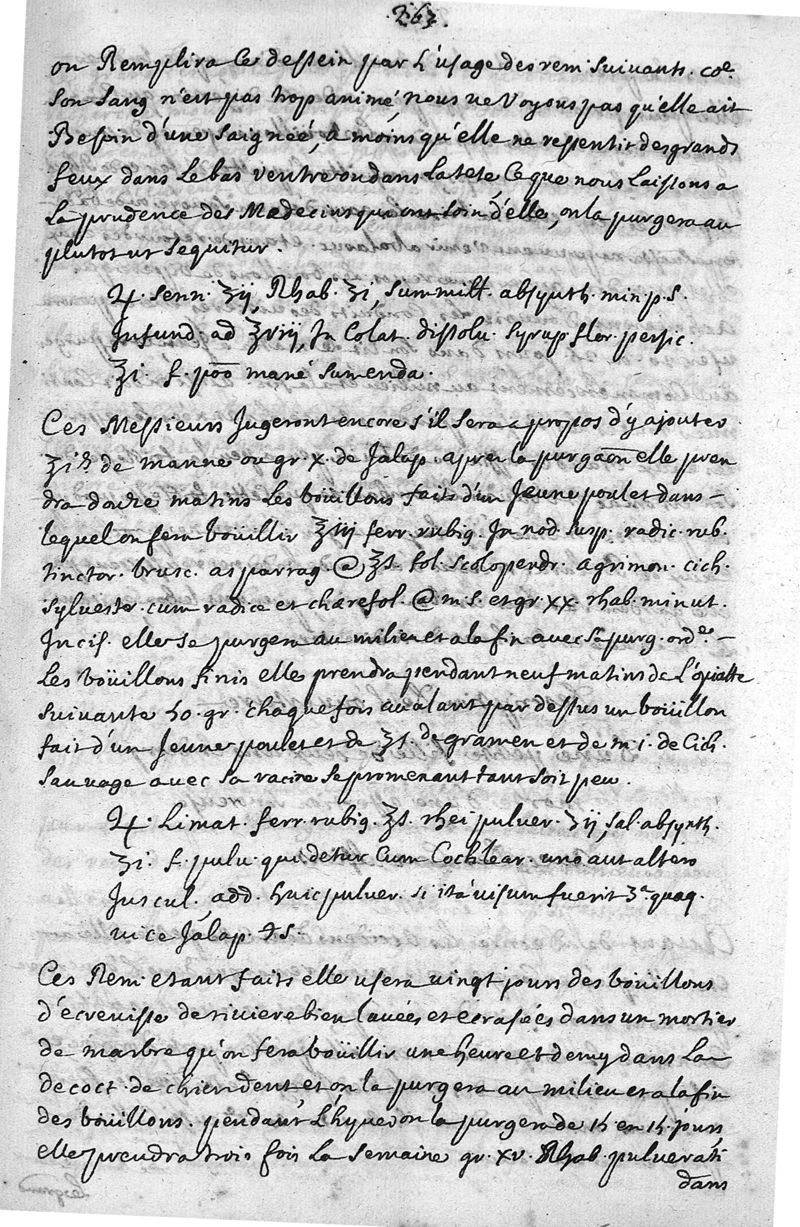 263.
on Remplira ce dessein par l'usage des rem. suivants. coe.
son sang n'est pas trop animé, nous ne Voyons pas qu'elle ait
Besoin d'une saignée, a moins qu'elle ne ressentit des grands
feux dans le bas ventre ou dans la tete, Ce que nous laissons a
la prudence des Medecins qui ont soin d'elle, on la purgera au
plutot ut sequitur.
♃. senn. ʒij, Rhab. ʒi, summitt. absynth. min. p. s.
Infund. ad ℥viij, In Colat. dissolu. syrup. flor. persic.
℥i. f. poo mané sumenda.
Ces Messieurs Jugeront encore s'il sera a propos d'y ajouter
℥iß de manne ou gr. x. de Jalap. apres la purgaon elle pren
dra douze matins les boüillons faits d'un Jeune poulet dans –
lequel on fera boüillir ʒiij ferr. rubig. In nod. susp. radic. rub.
tinctor. brusc. asparrag. @ ℥s. fol. scolopendr. agrimon. cich.
sylvestr. cum radice et charefol. @ m. s. et gr. xx. rhab. minut.
Incis. elle se purgera au milieu et a la fin avec sa purg. orde. –
Les boüillons finis elle prendra pendant neuf matins de L'opiatte
suivante 40. gr. chaque fois avalant par dessus un boüillon
fait d'un Jeune poulet et de ℥s. de gramen et de m. i. de Cich.
sauvage avec sa racine se promenant tant soit peu.
♃. Limat. ferr. rubig. ℥s. rhei pulver. ʒij, sal. absynth.
ʒi. f. pulv. qui detur Cum Cochlear. uno aut altero
Juscul. add. huic pulver. si ità visum fuerit 3a. quaq.
vice Jalap. s.
Ces Rem. etant faits elle usera vingt jours des boüillons
d'ecrevisse de riviere bien lavées et ecrasées dans un mortier
de marbre qu'on fera boüillir une heure et demy dans La
decoct. de chiendent, et on la purgera au milieu et a la fin
des boüillons. pendant L'hyver on la purgera de 15 en 15. jours
elle prendra trois fois la semaine gr. xv. Rhab. pulverati
dans